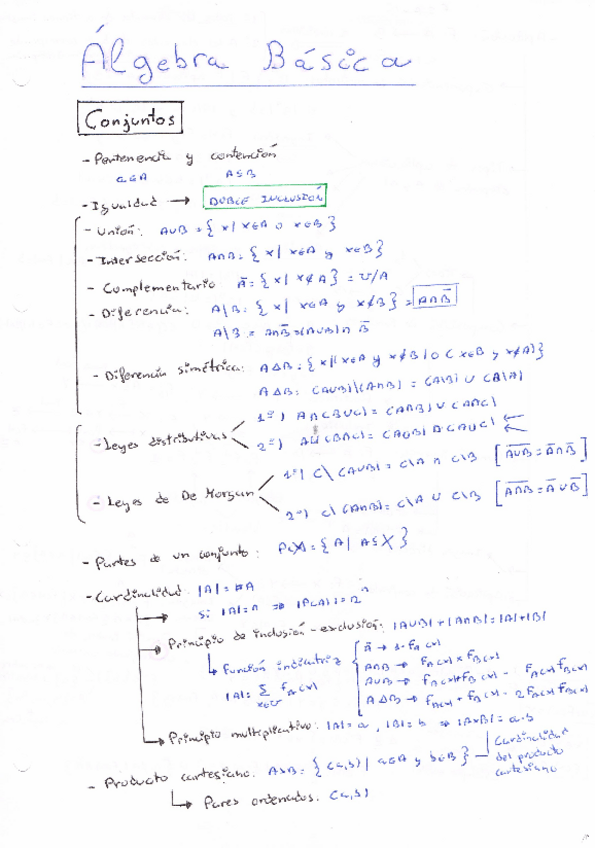 Álgebra Básica
Conjuntos
- Pertenencia y contención
a∈A A⊆B
- Igualdad → DOBLE INCLUSIÓN
- Unión: A∪B = { x | x∈A o x∈B }
- Intersección: A∩B = { x | x∈A y x∈B }
- Complementario Ā = { x | x∉A } = U/A
- Diferencia: A\B = { x | x∈A y x∉B } = A∩B̄
A\B = A∩B̄ = (A∪B)∩B̄
- Diferencia simétrica: A∆B = { x | (x∈A y x∉B) o (x∈B y x∉A) }
A∆B = (A∪B)\(A∩B) = (A\B) ∪ (B\A)
- Leyes distributivas
1ª) A∩(B∪C) = (A∩B)∪(A∩C)
2ª) A∪(B∩C) = (A∪B)∩(A∪C)
- Leyes de De Morgan
1ª) C\(A∪B) = C\A ∩ C\B [A∪B̅ = Ā∩B̄]
2ª) C\(A∩B) = C\A ∪ C\B [A∩B̅ = Ā∪B̄]
- Partes de un conjunto: P(X) = { A | A⊆X }
- Cardinalidad: |A| = #A
si |A| = n ⇒ |P(A)| = 2ⁿ
Principio de inclusión-exclusión: |A∪B| + |A∩B| = |A| + |B|
Función indicatriz
|A| = ∑ f_A(x)
x∈U
Ā → 1 - f_A(x)
A∩B → f_A(x) × f_B(x)
A∪B → f_A(x) + f_B(x) - f_A(x) f_B(x)
A∆B → f_A(x) + f_B(x) - 2f_A(x) f_B(x)
Principio multiplicativo: |A| = a, |B| = b ⇒ |A×B| = a·b
- Producto cartesiano: A×B = { (a,b) | a∈A y b∈B }
Cardinalidad
del producto
cartesiano
Pares ordenados. (a,b)